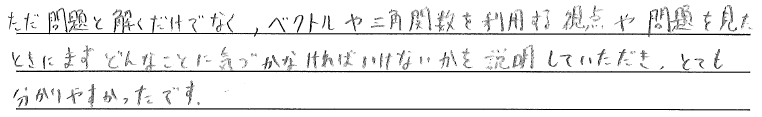 ただ問題と解くだけでなく,ベクトルや三角関数を利用する視点や問題を見た
ときにまずどんなことに気づかなければいけないかを説明していただき,とても
分かりやすかったです.